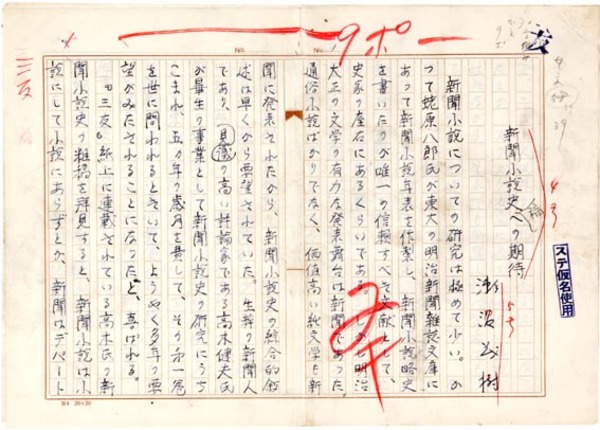 9ポ
三友
ステ仮名使用
4号
5号
新聞小説史への期待
渋沢 茂樹
新聞小説についての研究は極めて少い。か
つて蛯原八郎氏が東大の明治新聞雑誌文庫に
あって新聞小説年表を作製し、新聞小説略史
を書いたのが唯一の信頼すべき文献として、
史家の座右にあるくらいである。しかし明治
大正の文学の有力な発表舞台は新聞であった。
通俗小説ばかりでなく、価値高い純文学も新
聞に発表されたから、新聞小説史の綜合的叙
述は早くから要望されていた。生粋の新聞人
であり、見識の高い評論家である高木健夫氏
が畢生の事業として新聞小説史の研究にうち
こまれ、五カ年の歳月を費して、その第一巻
を世に問われるときいて、ようやく多年の要
望がみたされることになったと、喜ばれる。
〝三友〟紙上に連載されている高木氏の新
聞小説史の粗稿を拝見すると、新聞小説は小
説にして小説にあらずとか、新聞はデパート
B4 20×20